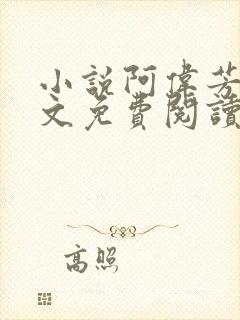 小説阿偉芳
文免費閱讀
高照